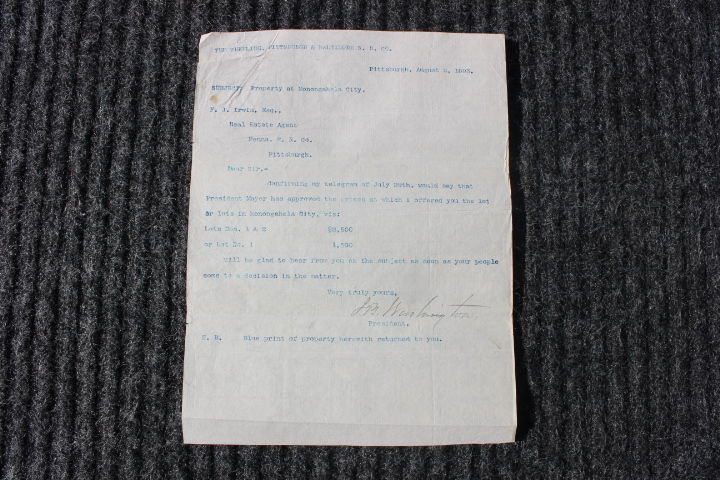 THE WHEELING, PITTSBURGH & BALTIMORE R. R. CO.
Pittsburgh, August 2, 1893.
SUBJECT: Property at Monongahela City.
F. J. Irwin, Esq.,
Real Estate Agent
Penna. R. R. Co.
Pittsburgh.
Dear Sir,-
Confirming my telegram of July 29th, would say that
President Mayer has approved the prices at which I offered you the lot
or lots in Monongahela City, viz:
Lots Nos. 1 & 2 $2,500
or Lot No. 1 1,500
Will be glad to hear from you on the subject as soon as your people
come to a decision in the matter.
Very truly yours,
J.B. Washington.
President.
N. B. Blue print of property herewith returned to you.